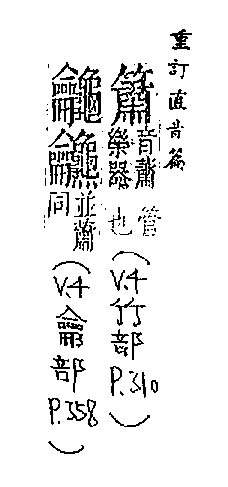 重訂直音篇
簫音蕭管樂器也(V.4竹部P.310)
並蕭同(V.4龠部P.358)